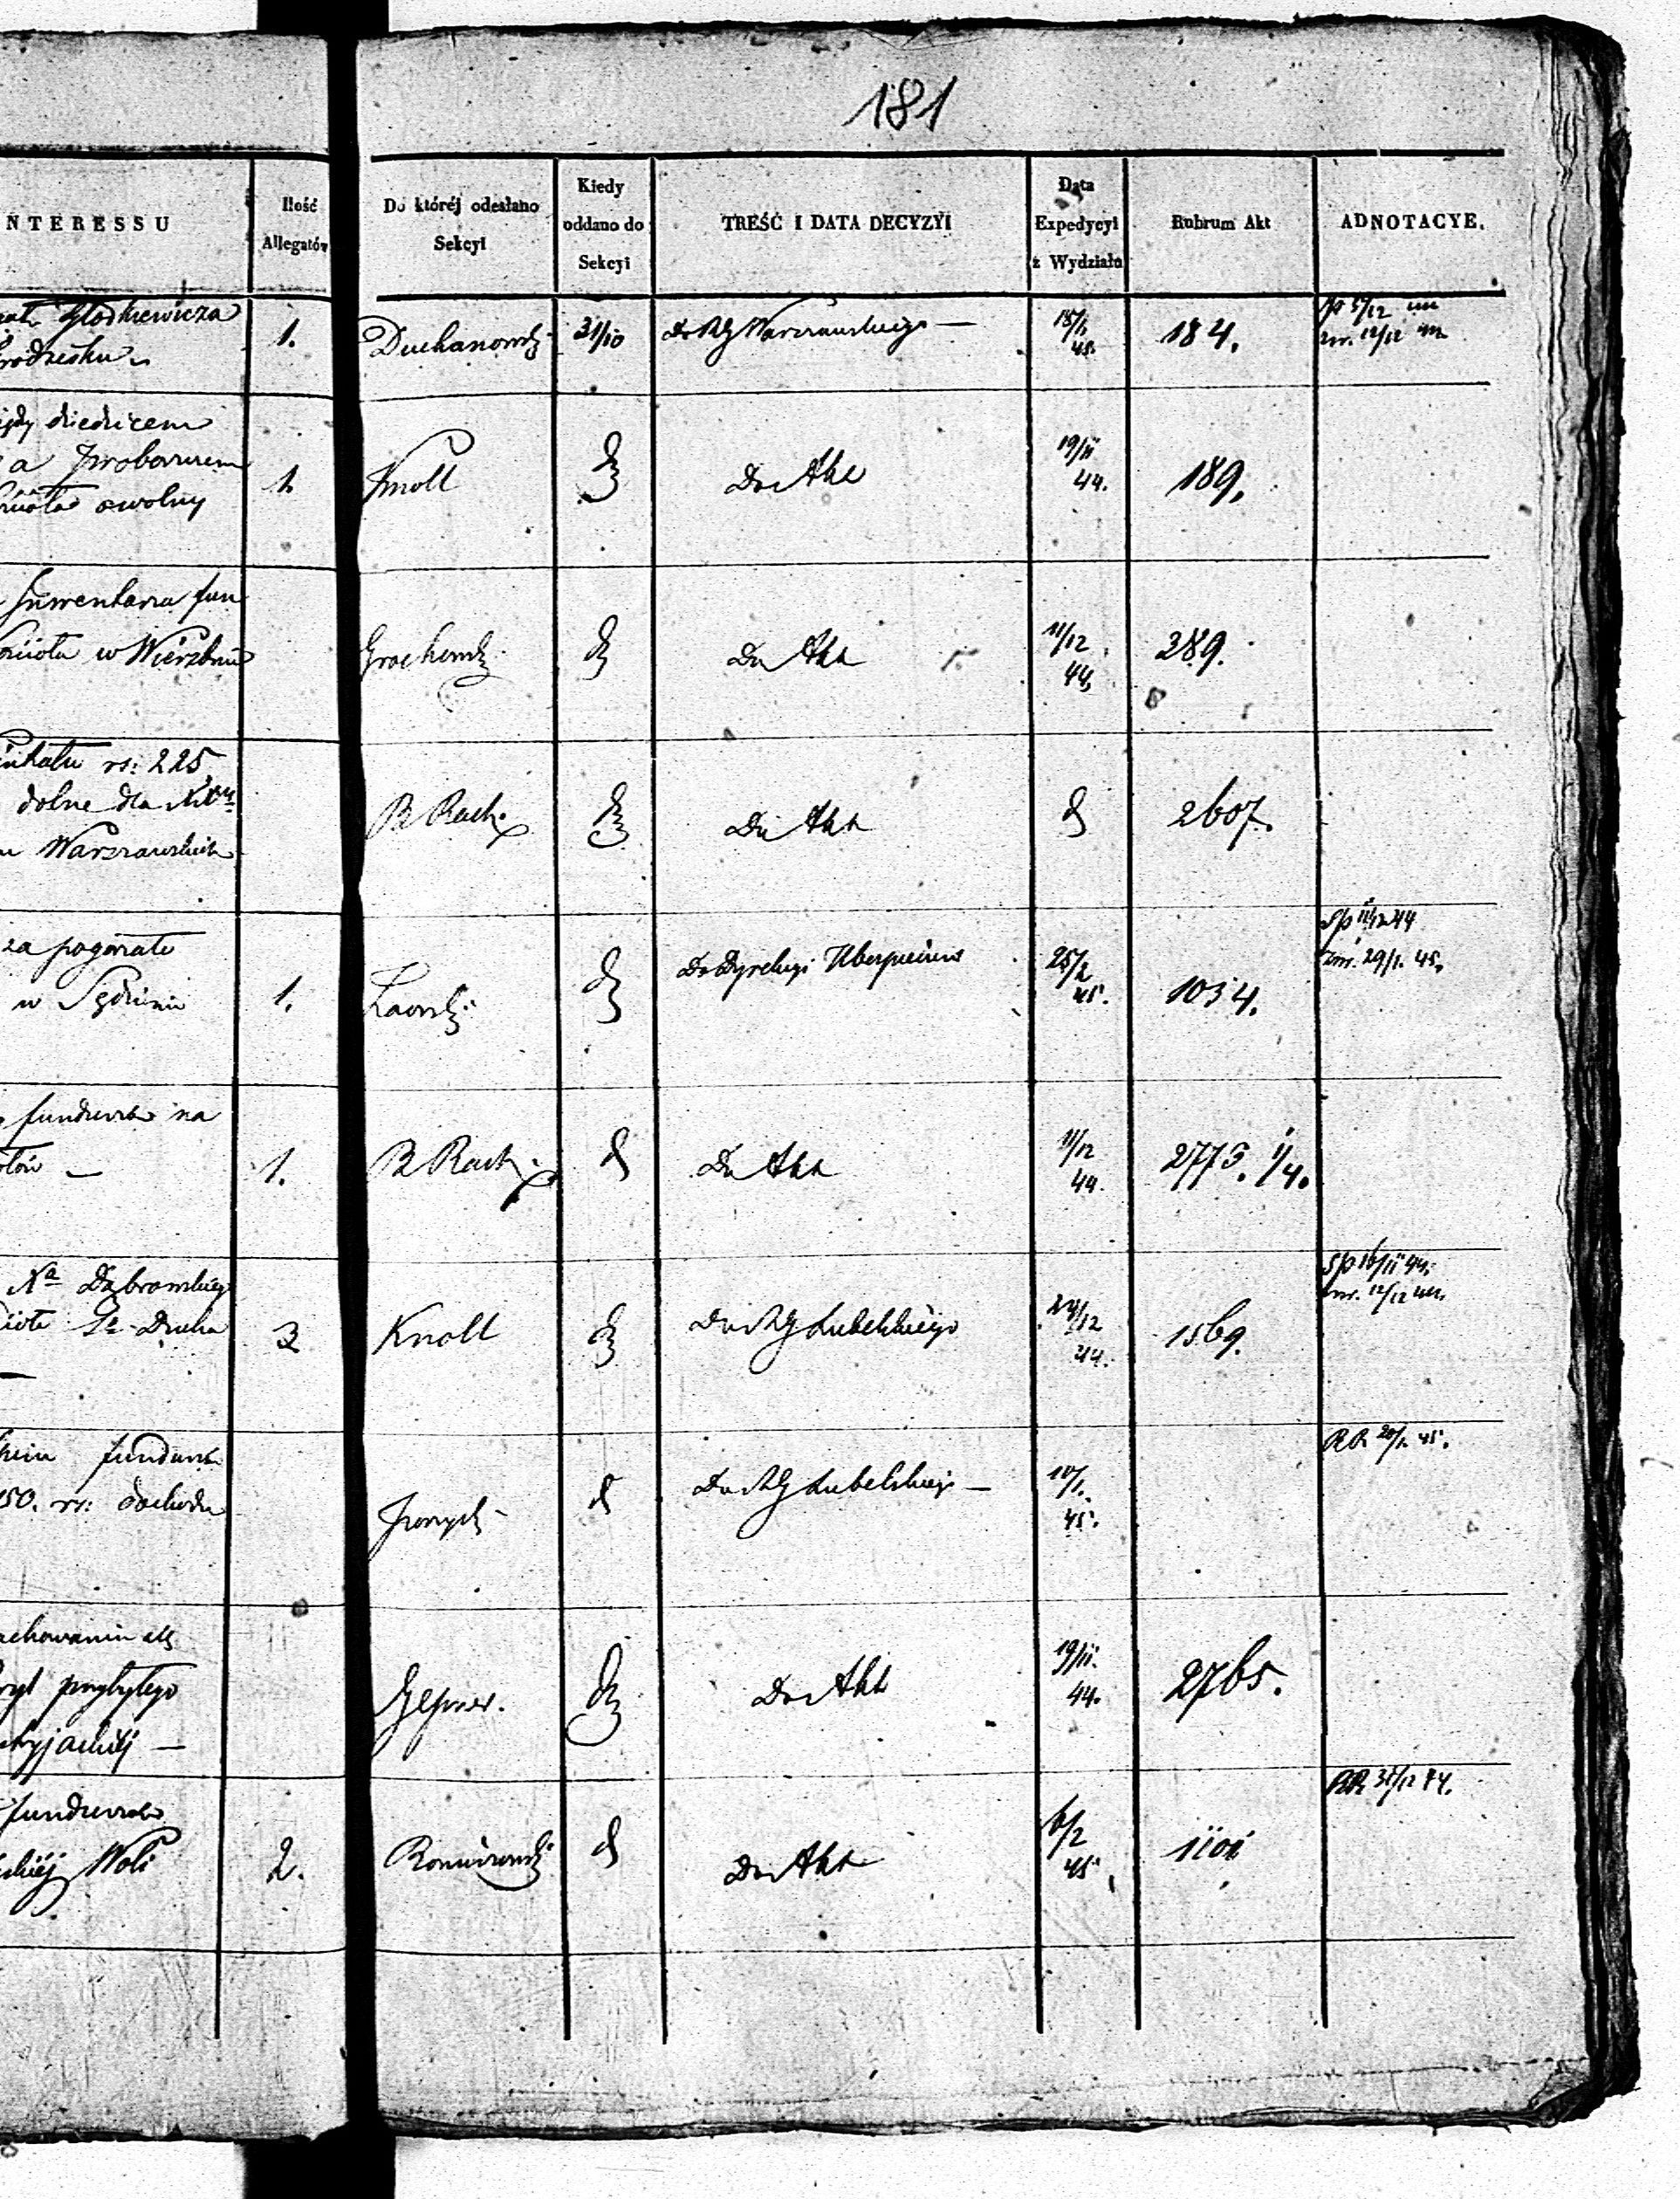 181
NTERESSU
Ilość
Allegatów
Do któréj odesłano
Sekcyi
Kiedy
oddano do
Sekcyi
TREŚĆ I DATA DECYZYI
Data
Expedycyi
z Wydziału
Rubrum Akt
ADNOTACYE.
Głodkiewicza
1.
Duchanowski
31/10
Do RG Warszawskiego —
18/1
45.
184.
Sp 5/12 44
zw. 12/12 44
dziedzicem
a Proboszczem
o wolny
1.
Knoll
d
Do Akt
19/11
44.
189.
Inwentarza fun
w Wierzbnie
Grochowski
d
Do Akt
11/12
44.
289.
rs: 225
dolne dla
Warszawskich
B Rach.
d
Do Akt
d
2607.
za pogorzałe
w Sędzinie
1.
d
Do Dyrekcyi Ubezpieczeń
25/2
45.
1034.
Sp 11/12 44
zw. 29/1. 45.
funduszu na
—
1.
B Rach.
d
Do Akt
11/12
44.
2775. 1/4.
Xa Dąbrowskiego
Sgo Ducha
—
3
Knoll
d
Do RG Lubelskiego
24/12
44.
1569.
Sp 16/11 44.
zw. 12/12 44.
funduszu
150. rs: dochodu
d
Do RG Lubelskiego —
10/1.
45.
RR 20/1. 45.
przybytego
—
Gepner.
d
Do Akt
19/11.
44.
2765.
funduszu
Woli
2.
d
Do Akt
6/2
45.
1101
RR 31/12 44.